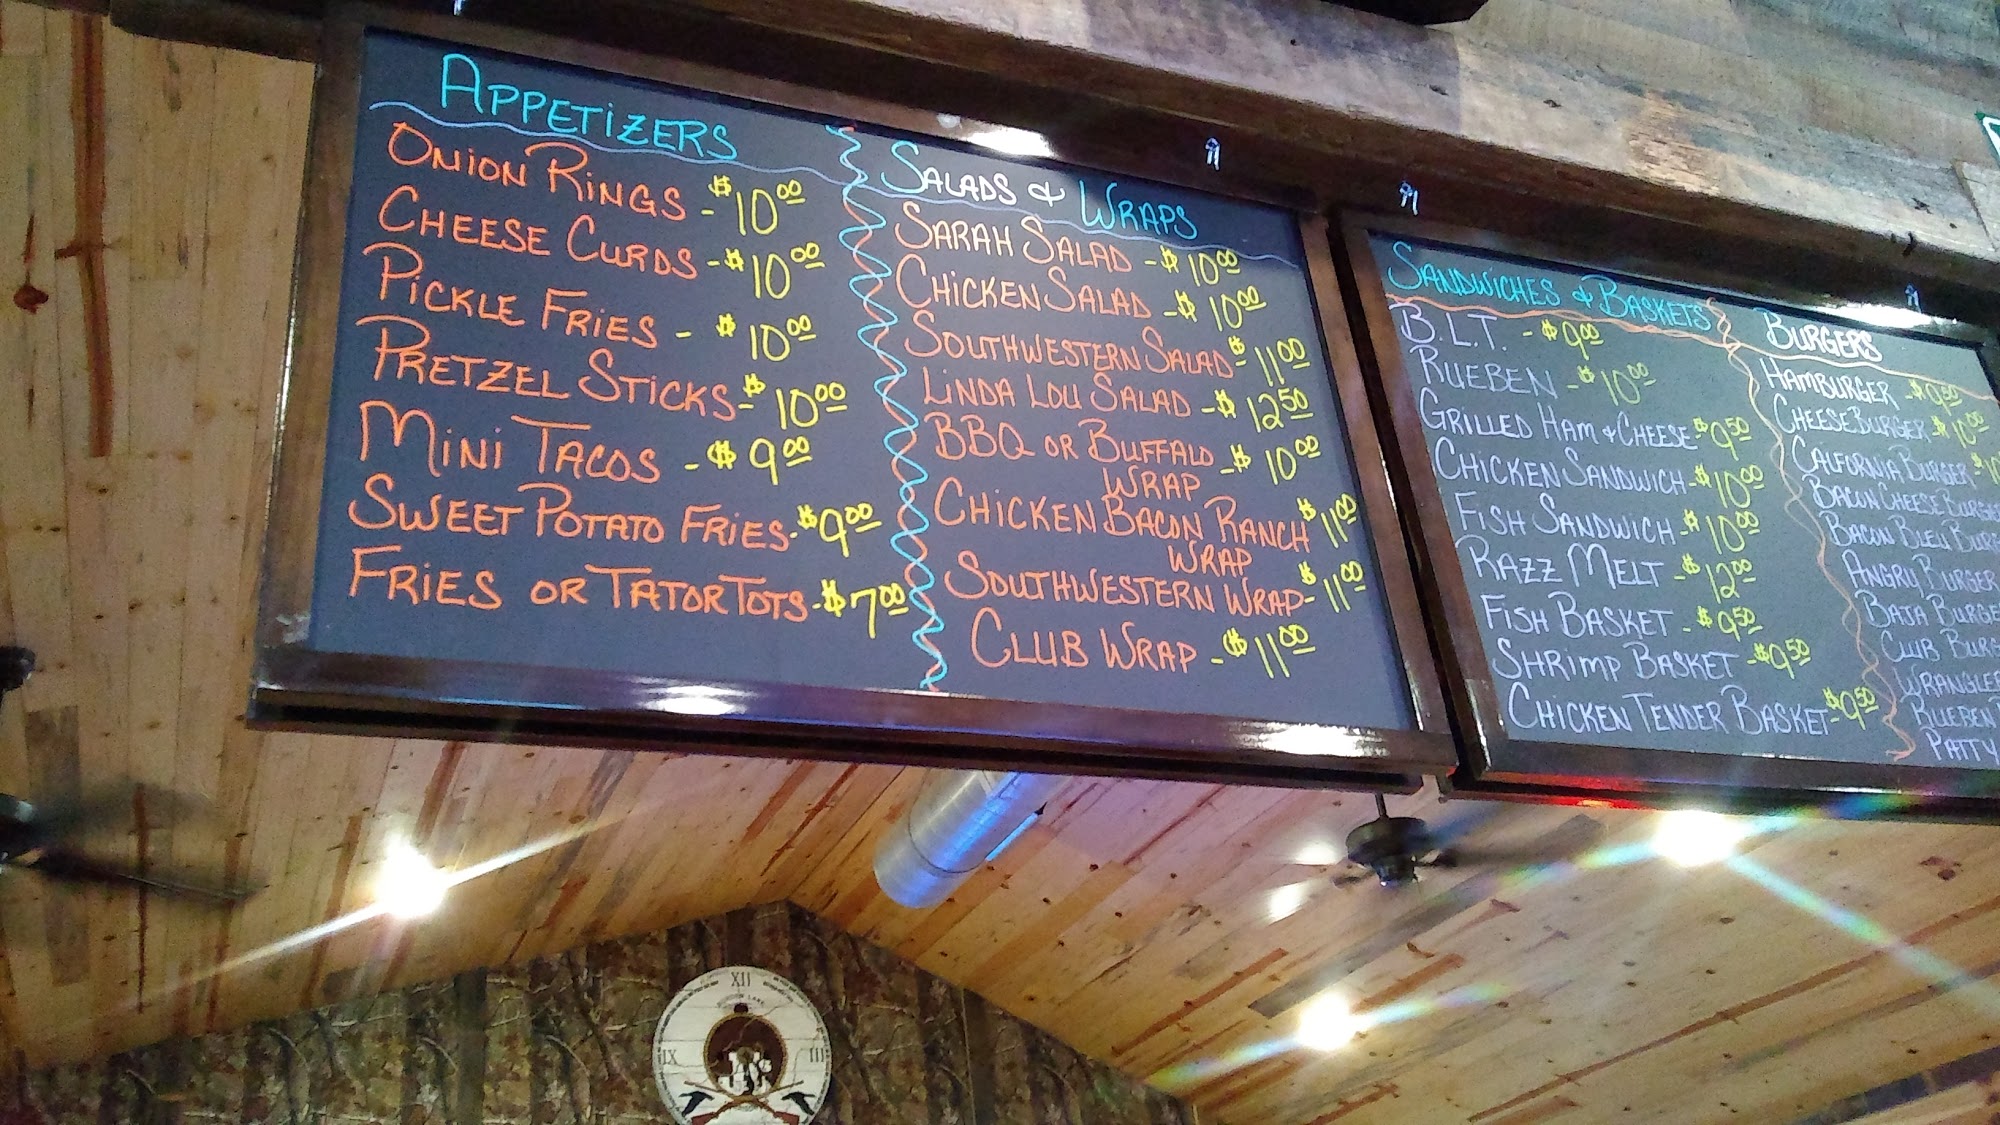 APPETIZERS
ONION RINGS - $10.00
CHEESE CURDS - $10.00
PICKLE FRIES - $10.00
PRETZEL STICKS - $10.00
MINI TACOS - $9.00
SWEET POTATO FRIES - $9.00
FRIES OR TATOR TOTS - $7.00
SALADS & WRAPS
SARAH SALAD - $10.00
CHICKEN SALAD - $10.00
SOUTHWESTERN SALAD $11.00
LINDA LOU SALAD - $12.50
BBQ OR BUFFALO - $10.00
WRAP
CHICKEN BACON RANCH $11.00
WRAP
SOUTHWESTERN WRAP - $11.00
CLUB WRAP - $11.00
SANDWICHES & BASKETS
B.L.T. - $9.00
RUEBEN - $10.00
GRILLED HAM & CHEESE - $9.50
CHICKEN SANDWICH - $10.00
FISH SANDWICH - $10.00
RAZZ MELT - $12.00
FISH BASKET - $9.50
SHRIMP BASKET - $9.50
CHICKEN TENDER BASKET - $9.50
BURGERS
HAMBURGER - $9.50
CHEESEBURGER - $10.00
CALIFORNIA BURGER - $10
BACON CHEESE BURGER
BACON BLEU BURG
ANGRY BURGER
BAJA BURGE
CLUB BURG
WRANGLER
RUEBEN
PATTY
XII
IX
III